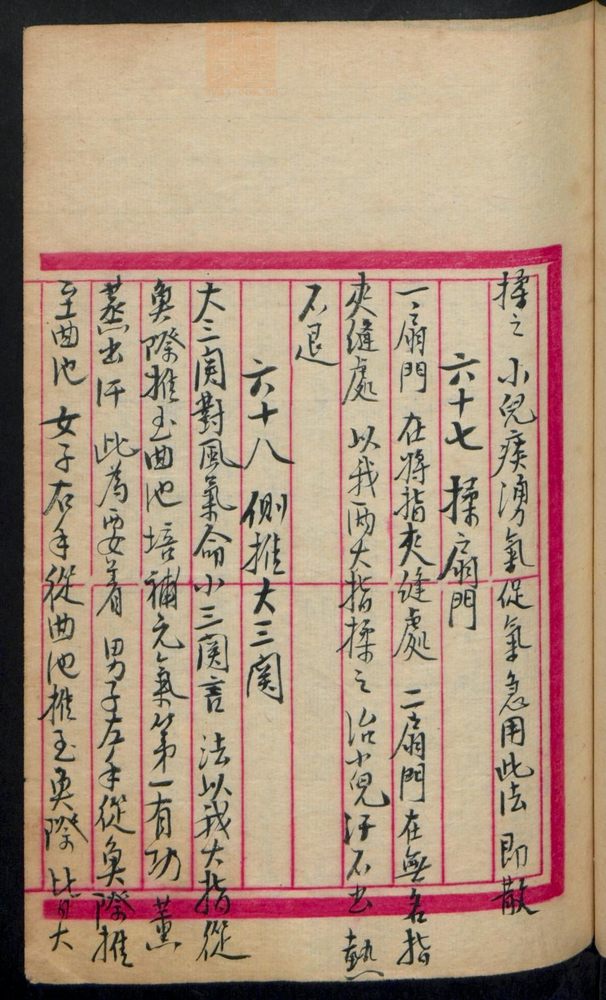 揉之 小兒痰湧氣促氣急用此法 即散
六十七 揉二扇門
一扇門 在將指夾縫處 二扇門在無名指
夾縫處 以我兩大指揉之治小兒汗不出 熱
不退
六十八 側推大三関
大三関對風氣命小三関言 法以我大指從
魚際推至曲池培補元氣第一有功 薰
蒸出汗 此為要着 男子左手從魚際推
至曲池 女子右手從曲池推至魚際 皆大